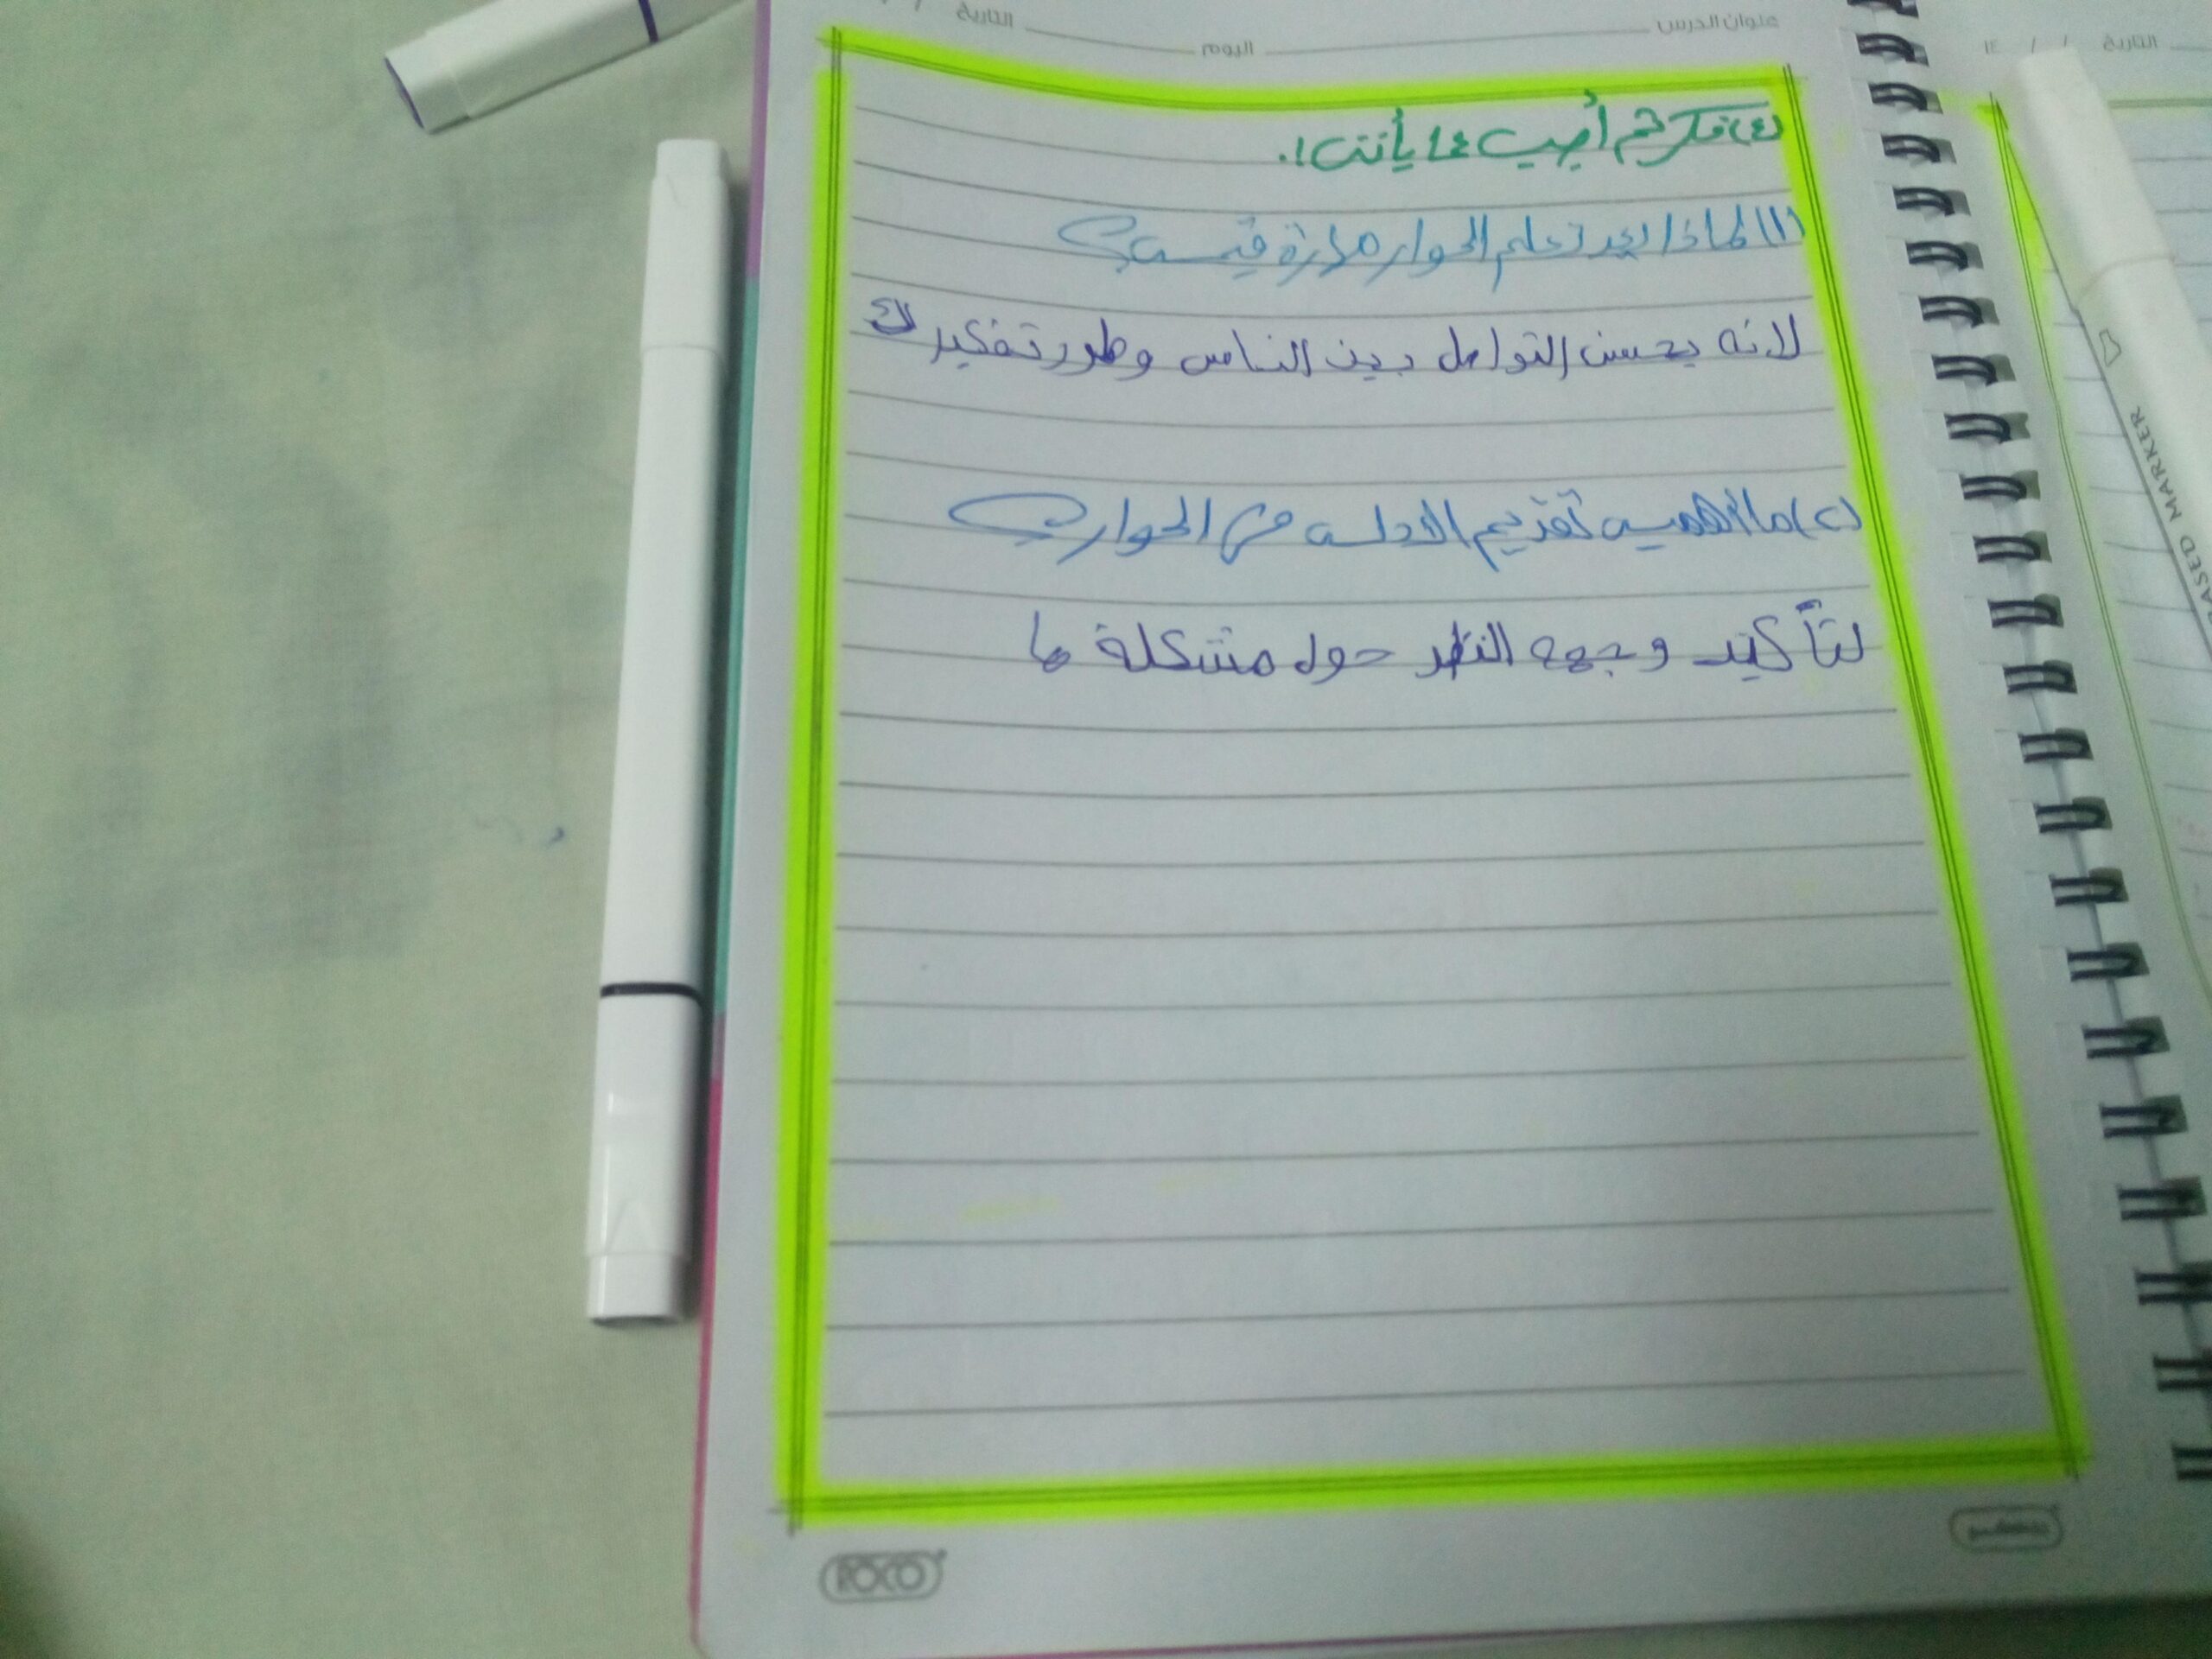 عنوان الدرس اليوم التاريخ / /
التاريخ / / ١٤
٤) فكر ثم أجيب عما يأتي ا.
(١) لماذا يعد تعلم الحوار مهارة قيمة؟
لانه يحسن التواصل بين الناس وطور تفكيرك
(٢) ما أهميه تقديم الأدلة في الحوار؟
لتأكيد وجهه النظر حول مشكلة ما
ROCO
BASED MARKER